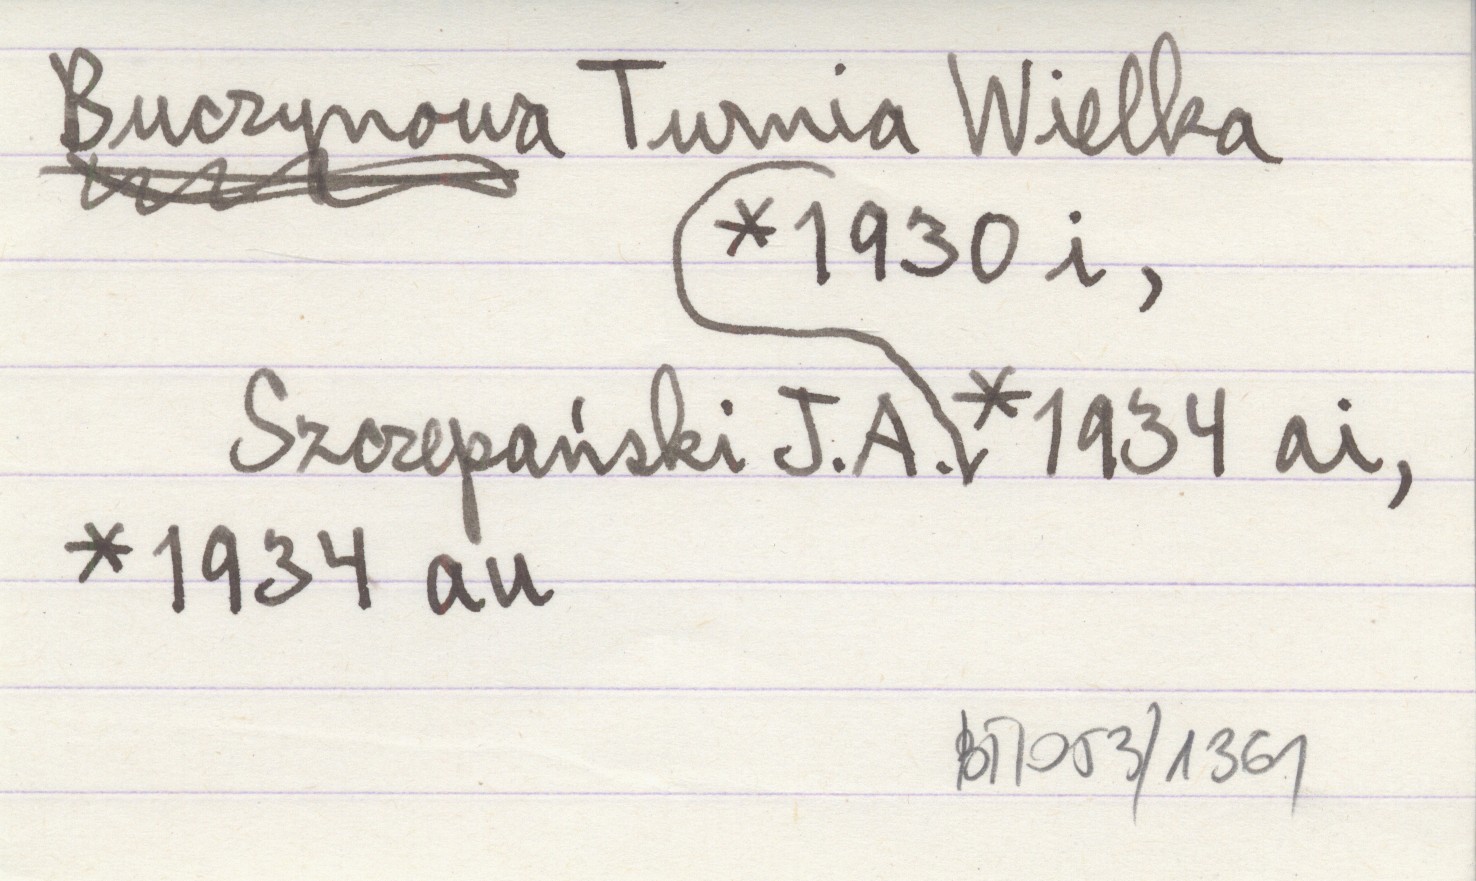 Buczynowa Turnia Wielka
*1930 i,
Szczepański J.A. *1934 ai,
*1934 au
053/1361